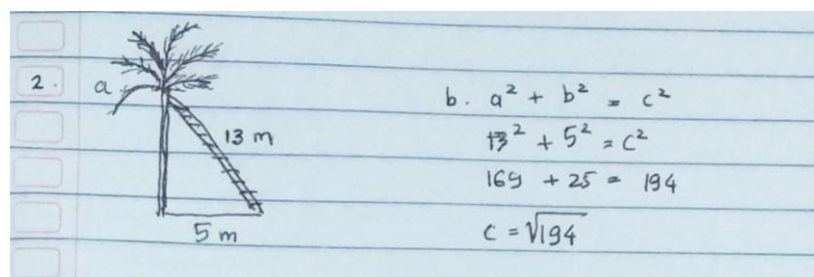 2. a
13 m
5 m
b. a² + b² = c²
13² + 5² = c²
169 + 25 = 194
c = √194